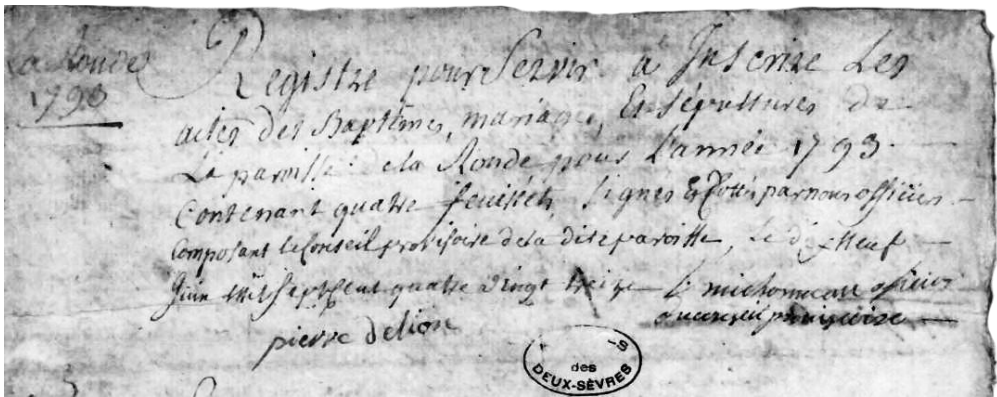 La Ronde
1793
Registre pour Servir a Inscrire Les
actes des Baptêmes, mariages, Et Sépultures de
La paroisse de la Ronde pour L'année 1793
Contenant quatre feuillets, Signés & Cottés par nous officiers
Composant le Conseil provisoire de la dite paroisse, Le dix Neuf
Juin Mil Sept Cent quatre Vingt treize L. michonneau officier
du conseil provisoire
pierre delion
S
des
DEUX-SÈVRES